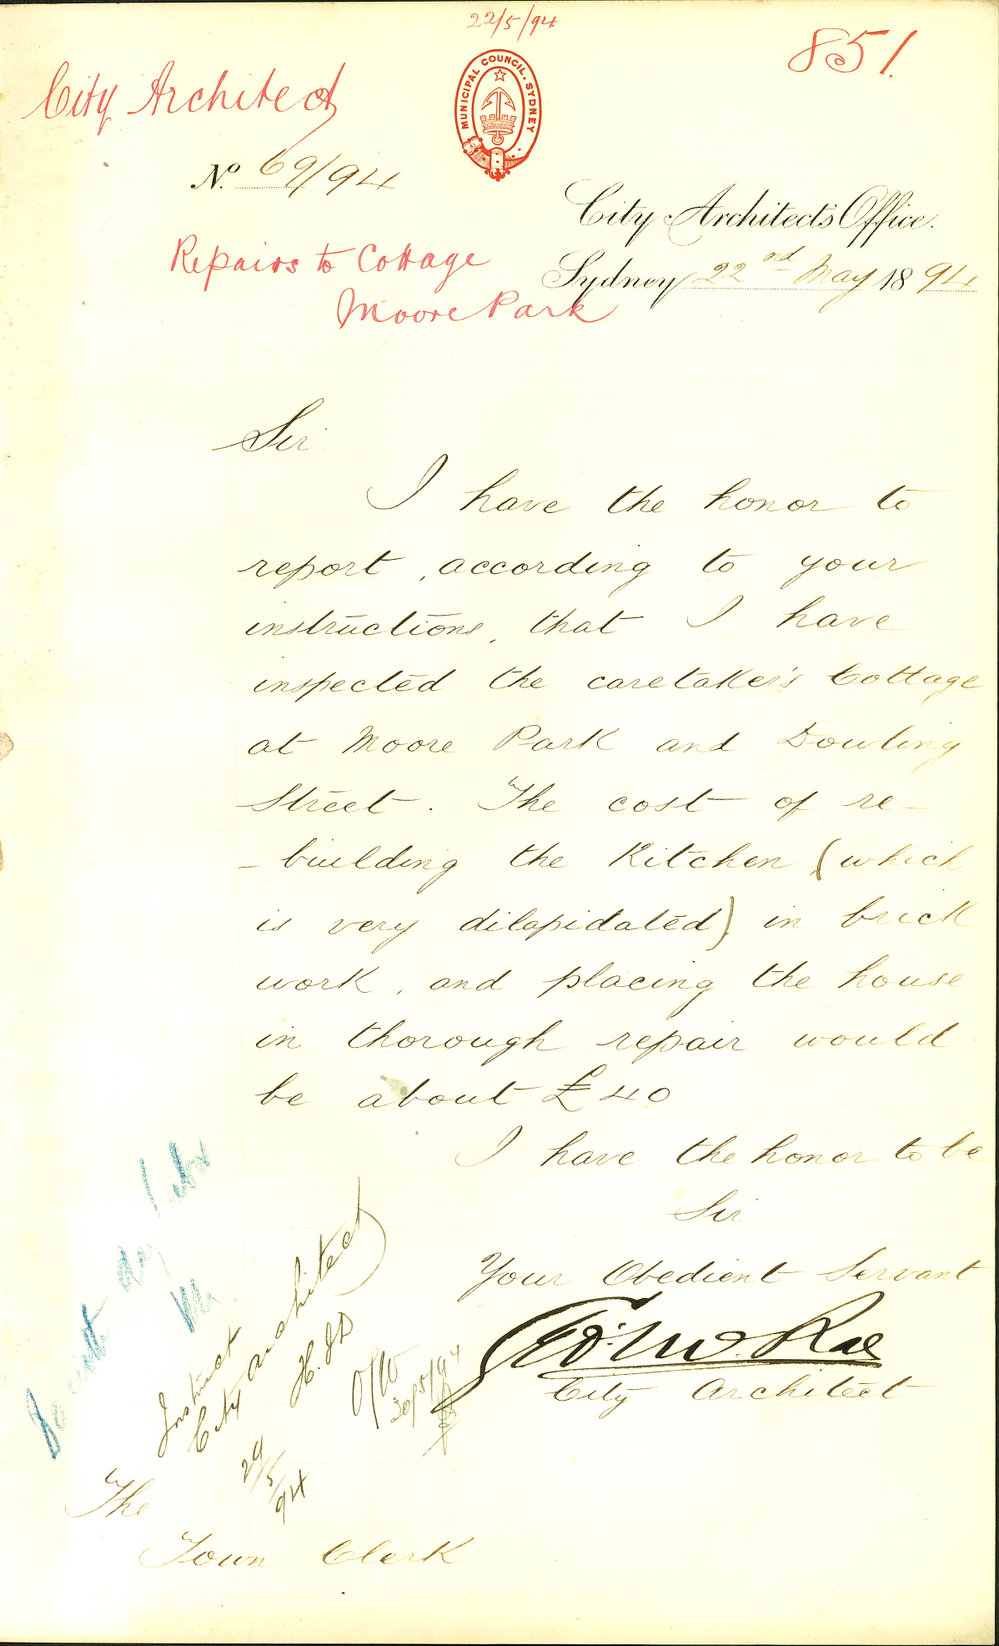 22/5/94
851.
City Architect
MUNICIPAL COUNCIL. SYDNEY
No. 69/94
City Architect's Office.
Repairs to Cottage
Moore Park
Sydney 22nd May 1894
Sir
I have the honor to
report, according to your
instructions, that I have
inspected the caretaker's Cottage
at Moore Park and Dowling
Street. The cost of re-
-building the Kitchen (which
is very dilapidated) in brick
work, and placing the house
in thorough repair would
be about £40
I have the honor to be
Sir
Your Obedient Servant
Geo. McRae
City Architect
Instruct
City Architect
29/5/94
30/5/94
The
Town Clerk